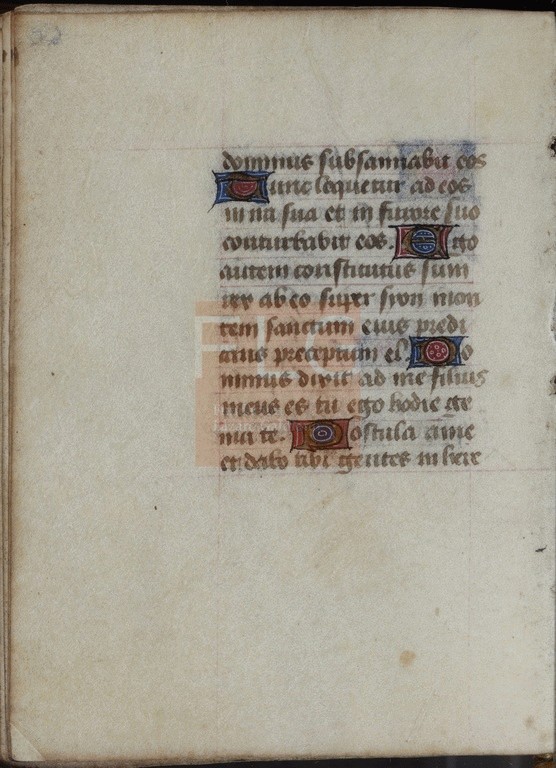 dominus subsannabit eos
Tunc loquetur ad eos
in ira sua et in furore suo
conturbabit eos. Ego
autem constitutus sum
rex ab eo super syon mon
tem sanctum eius predi
cans preceptum ei. Do
minus dixit ad me filius
meus es tu ego hodie ge
nui te. Postula a me
et dabo tibi gentes in here
FLG